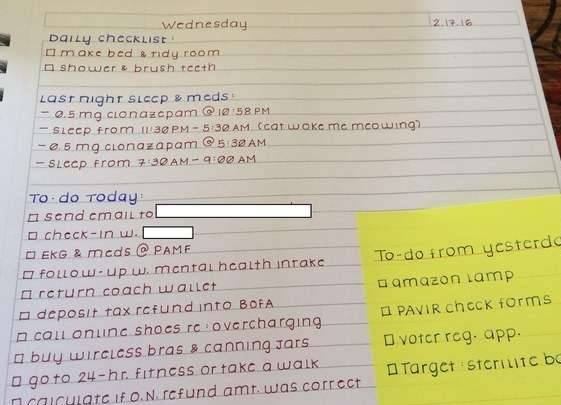 Wednesday 2.17.16
Daily checklist:
□ make bed & tidy room
□ shower & brush teeth
Last night sleep & meds:
- 0.5 mg clonazepam @ 10:58 PM
- sleep from 11:30 PM - 5:30 AM (cat woke me meowing)
- 0.5 mg clonazapam @ 5:30 AM
- sleep from 7:30 AM - 9:00 AM
To-do Today:
□ send email to
□ check-in w.
□ EKG & meds @ PAMF
□ follow-up w. mental health intake
□ return coach wallet
□ deposit tax refund into BofA
□ call online shoes re: overcharging
□ buy wireless bras & canning jars
□ go to 24-hr. fitness or take a walk
□ calculate if O.N. refund amt. was correct
To-do from yesterda
□ amazon lamp
□ PAVIR check forms
□ voter reg. app.
□ Target: sterilite bo